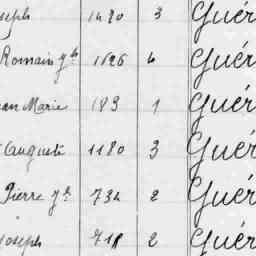 seph 1480 3 Guér
Romain 1626 4 Guér
an Marie 183 1 Guér
Auguste 1180 3 Guér
Pierre 734 2 Guér
Joseph 718 2 Guér